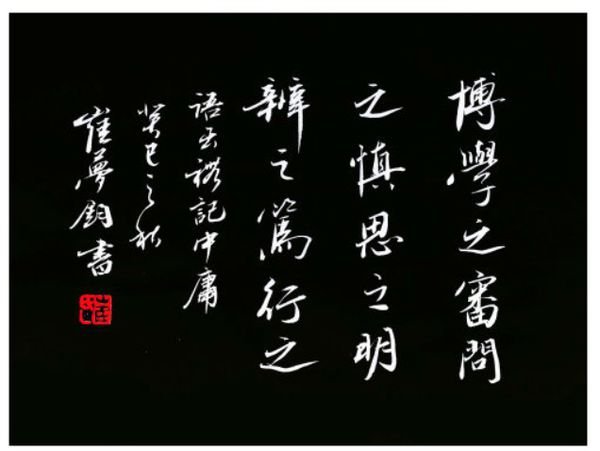 博學之審問
之慎思之明
辨之篤行之
語出禮記中庸
癸巳之秋
崔夢鈞書